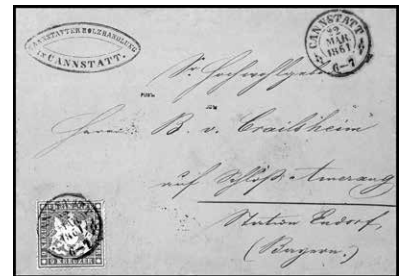 CANNSTATTER HOLZHANDLUNG
IN CANNSTATT.
CANNSTATT
MÄR.
1861
6-7
Sr. Hochwohlgeb.
Herrn B. v. Crailsheim
auf Schloß Amerang
Station Endorf,
(Bayern.)
KREUZER